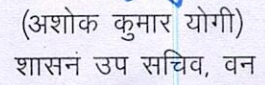 (अशोक कुमार योगी)
शासन उप सचिव, वन